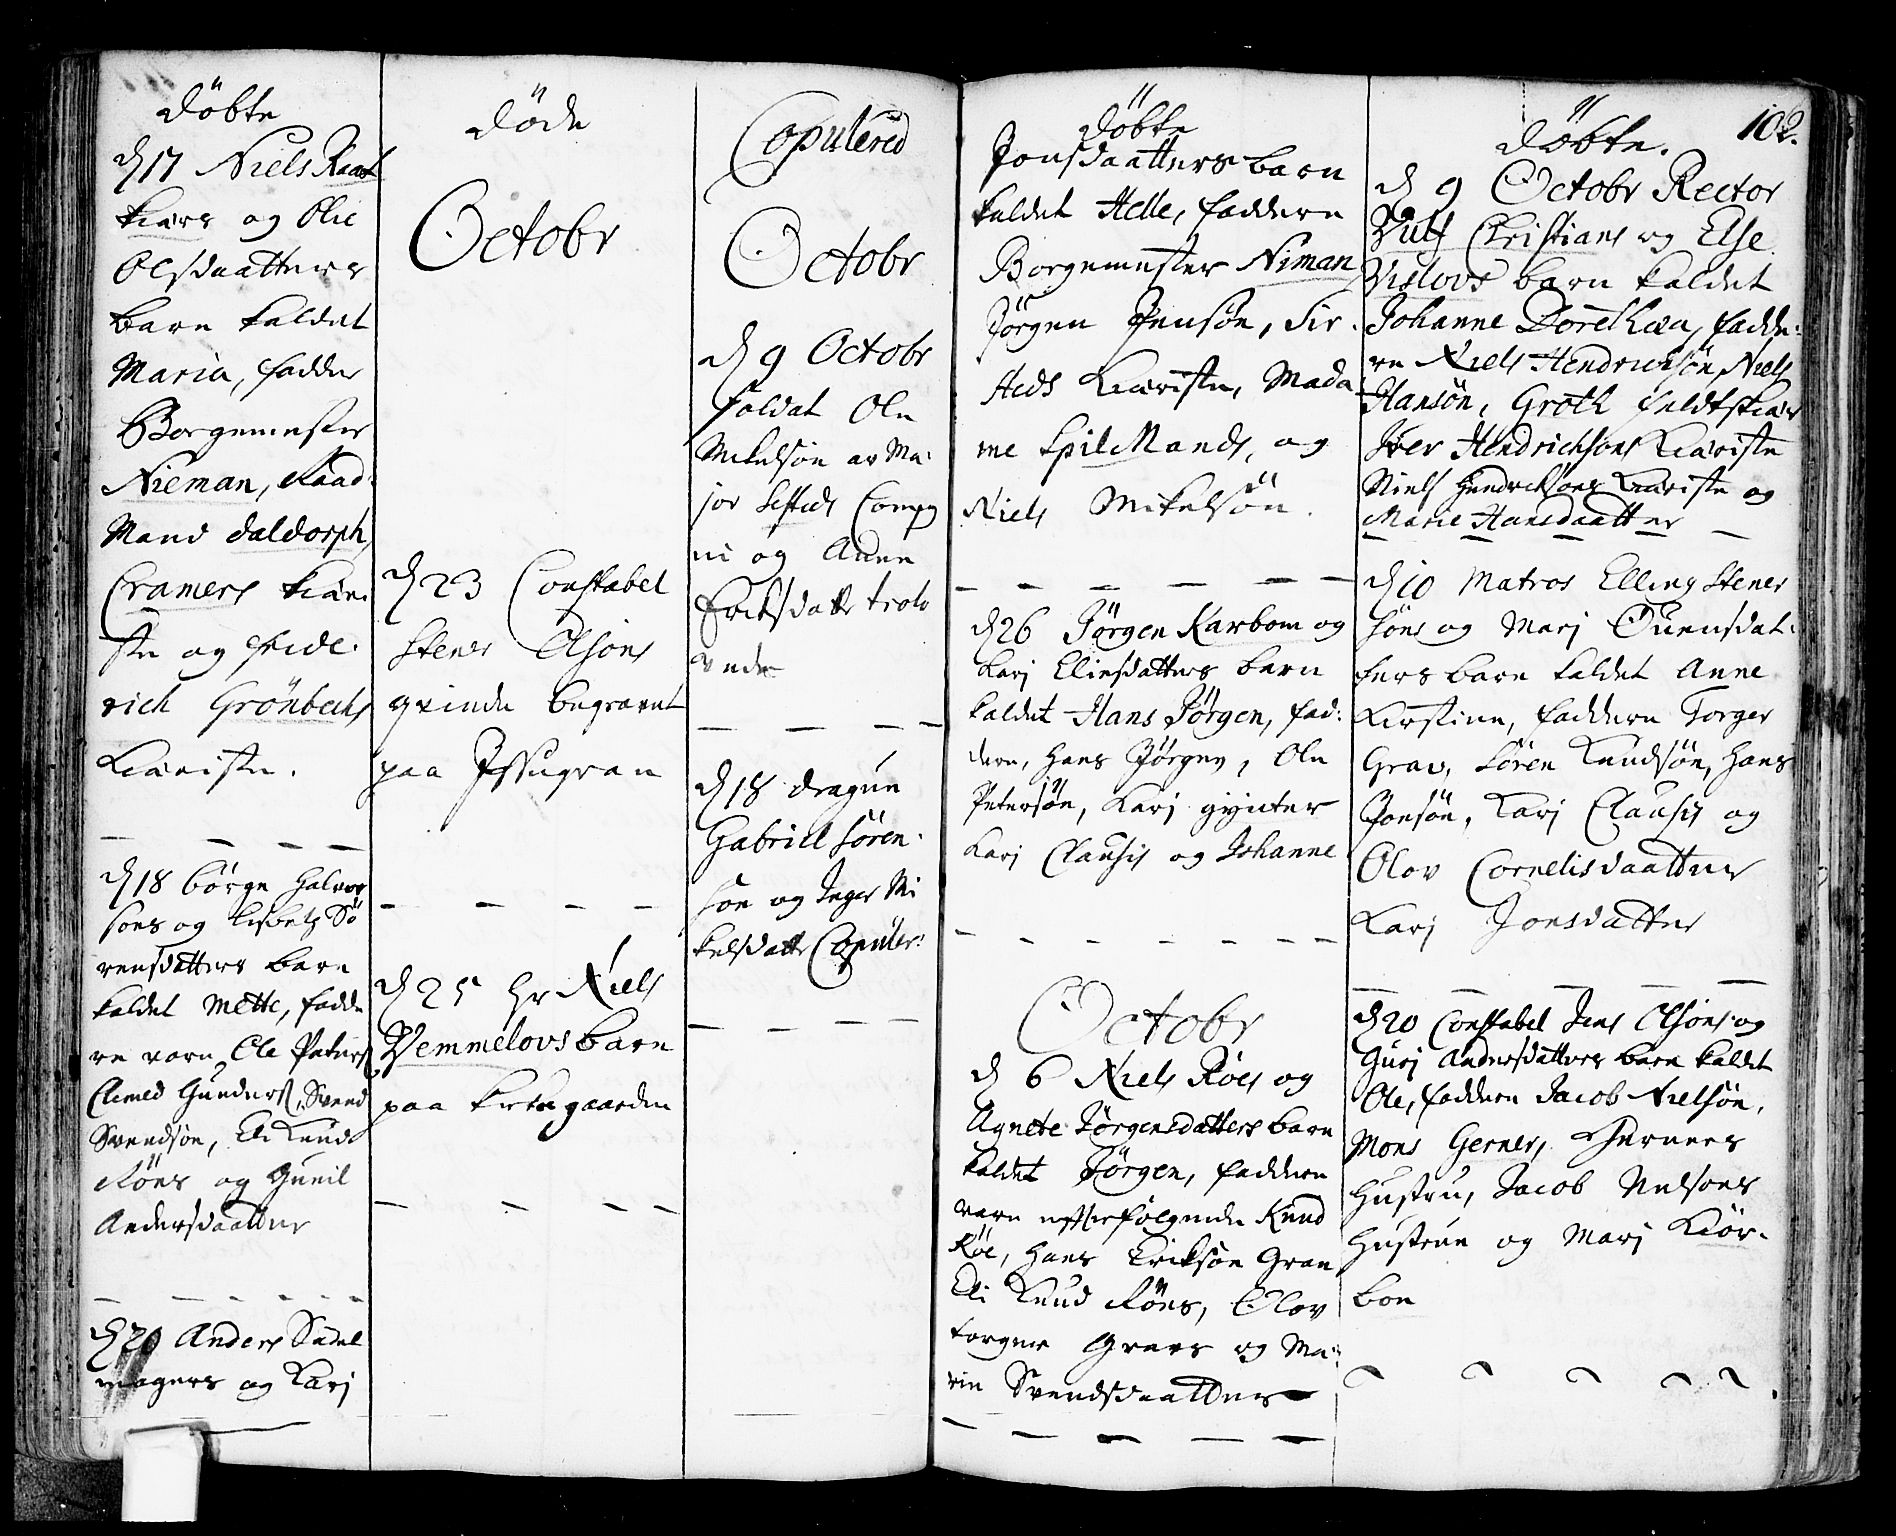 döbte
d 17 Niels Raas
kiærs og Olie
Olsdaatters
barn kaldet
Maria, fadder
Borgemester
Nieman, Raad-
Mand daldorph,
Cramers kiære-
ste og fride-
rich Grönbechs
kieriste.
d 18 börge halvor
sons og Lisbeth Sö
rensdatters barn
kaldet Mette, fadde
re varn Ole Peters
Clemed Gunders, Svend
Svendsön, Eli Knud
Röes og Gunil
Andersdaatter
d 20 Anders Sadel
magers og Kari
döde
Octobr
d 23 Constabel
Stener Olsöns
qvinde begravet
paa Issugran
d 25 hr Niels
Vemmelovs barn
paa kirkegaarden
Copulered
Octobr
d 9 Octobr
soldat Ole
Mikelsön av Ma-
jor Sesteds Comp
ni og Anne
Eriksdatter trolo
vede
d 18 dragun
Gabriel sören-
son og Inger Mi
kelsdatter Copuler:
döbte
Jonsdaatters barn
kaldet Helle, faddern
Borgemester Niman
Jörgen Jensön, Sir-
Heds kieriste, Mada
me SpilMands, og
Niels Mikelsön.
d 26 Jörgen Karbom og
Karj Eliesdatters barn
kaldet Hans Jörgen, fad:
dere, Hans Jörgen, Ole
Petersön, Karj gynter
Karj Clausis og Johanne
Octobr
d 6 Niels Röes og
Agnete Jörgensdatters barn
kaldet Jörgen, faddere
varn effterfölgende Knud
Röe, Hans Eriksön Gran
Eli Knud Röes, Olov
torger Graes og Ma-
rie Svendsdaatter
döbte. 102.
d 9 Octobr Rector
Vulf Christians og Else
Vislovs barn kaldet
Johanne Dorethæa, fadde:
re Niels Hendrichsön, Niels
Hansön, Groth feldtskiær
Iver Hendrichsons kieriste
Niels Hendricksons kieriste og
Marie Hansdaatter
d 10 Matros Elling Stener
söns og Marj Ouensdat-
ters barn kaldet Anne
kirstine, faddere Torger
Grav, Sören knudsön, Hans
Jonsön, Karj Clausis og
Olov Cornelisdaatter
Karj Jonsdatter
d 20 Constabel Jens Olsöns og
Gurj Andersdatters barn kaldet
Ole, faddere Jacob Nielsön,
Mons Gerner, Gerners
Hustru, Jacob Nielsons
Hustrue og Marj kiör-
boe